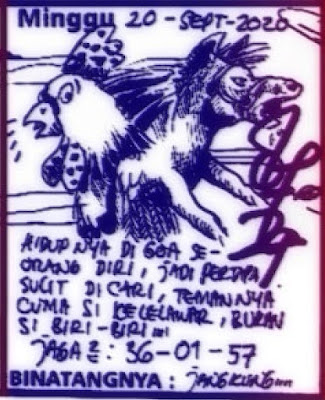 Minggu 20-SEPT-2020
HIDUPNYA DI GOA SE-
ORANG DIRI, JADI PERTAPA
SULIT DI CARI, TEMANNYA
CUMA SI KELELAWAR, BUKAN
SI BIRI-BIRI...
JAGA 2 : 36-01-57
BINATANGNYA : JANGKUNG...